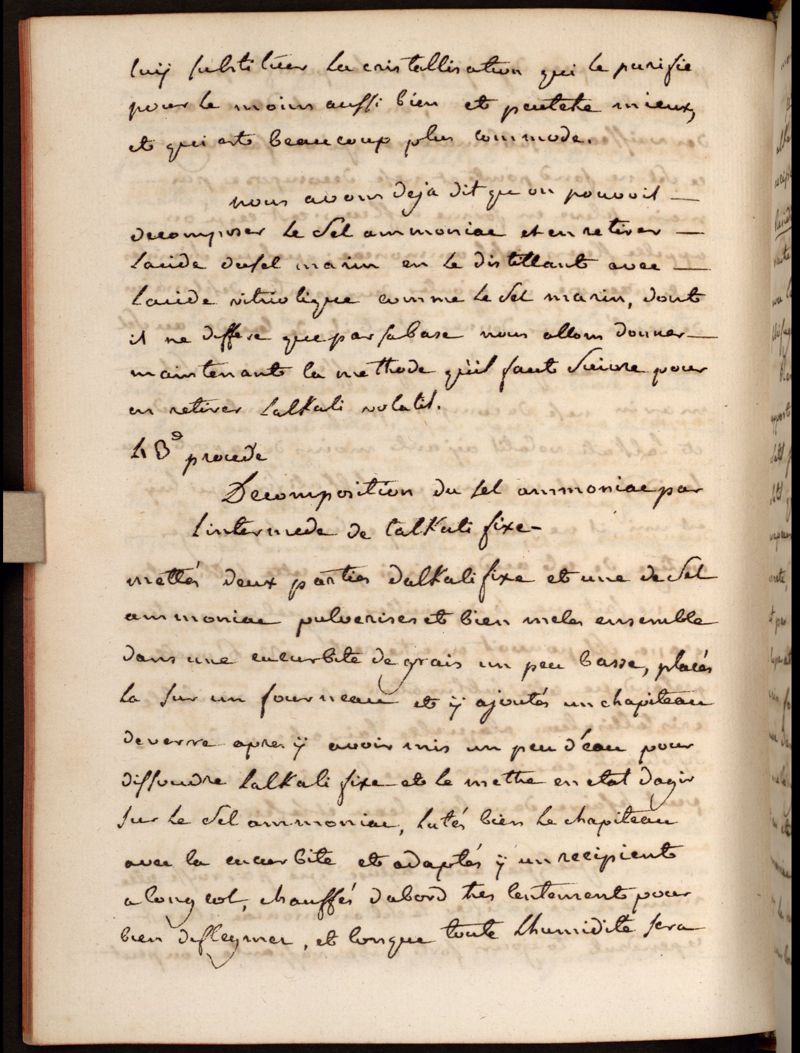 luy substituer la cristallisation qui le purifie
pour le moins aussi bien et peutete mieux,
et qui est beaucoup plus commode.
nous avons deja dit que on pouvoit —
decomposer le sel ammoniac et en retirer —
lacide du sel marin en le distillant avec —
lacide vitriolique comme le sel marin, dont
il ne differe que par sa base nous allons donner —
maintenant la methode qu'il faut suivre pour
en retirer lalkali volatil.
procede
Decomposition du sel ammoniac par
lintermede de lalkali fixe —
mettés deux parties dalkali fixe et une de sel
ammoniac pulverises et bien meles ensemble
dans une cucurbite de grais un peu basse, placés
la sur un fourneau et ÿ ajoutés un chapiteau
de verre apres ÿ avoir mis un peu d'eau pour
dissoudre lalkali fixe et le mettre en etat dagir
sur le sel ammoniac, lutés bien le chapiteau
avec la cucurbite et adaptés ÿ un recipient
a long col, chauffés dabord tres lentement pour
bien deflegmer, et lorsque toute lhumidité sera